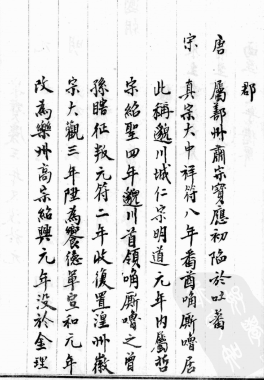 郡
唐 屬鄯州肅宗寶應初陷於吐蕃
宋 真宗大中祥符八年番酋唃厮囉居
此稱邈川城仁宗明道元年內屬哲
宗紹聖四年邈川首領唃厮囉之曾
孫瞎征叛元符二年收復置湟州徽
宗大觀三年陞為嚮德軍宣和元年
改為樂州高宗紹興元年没於金理